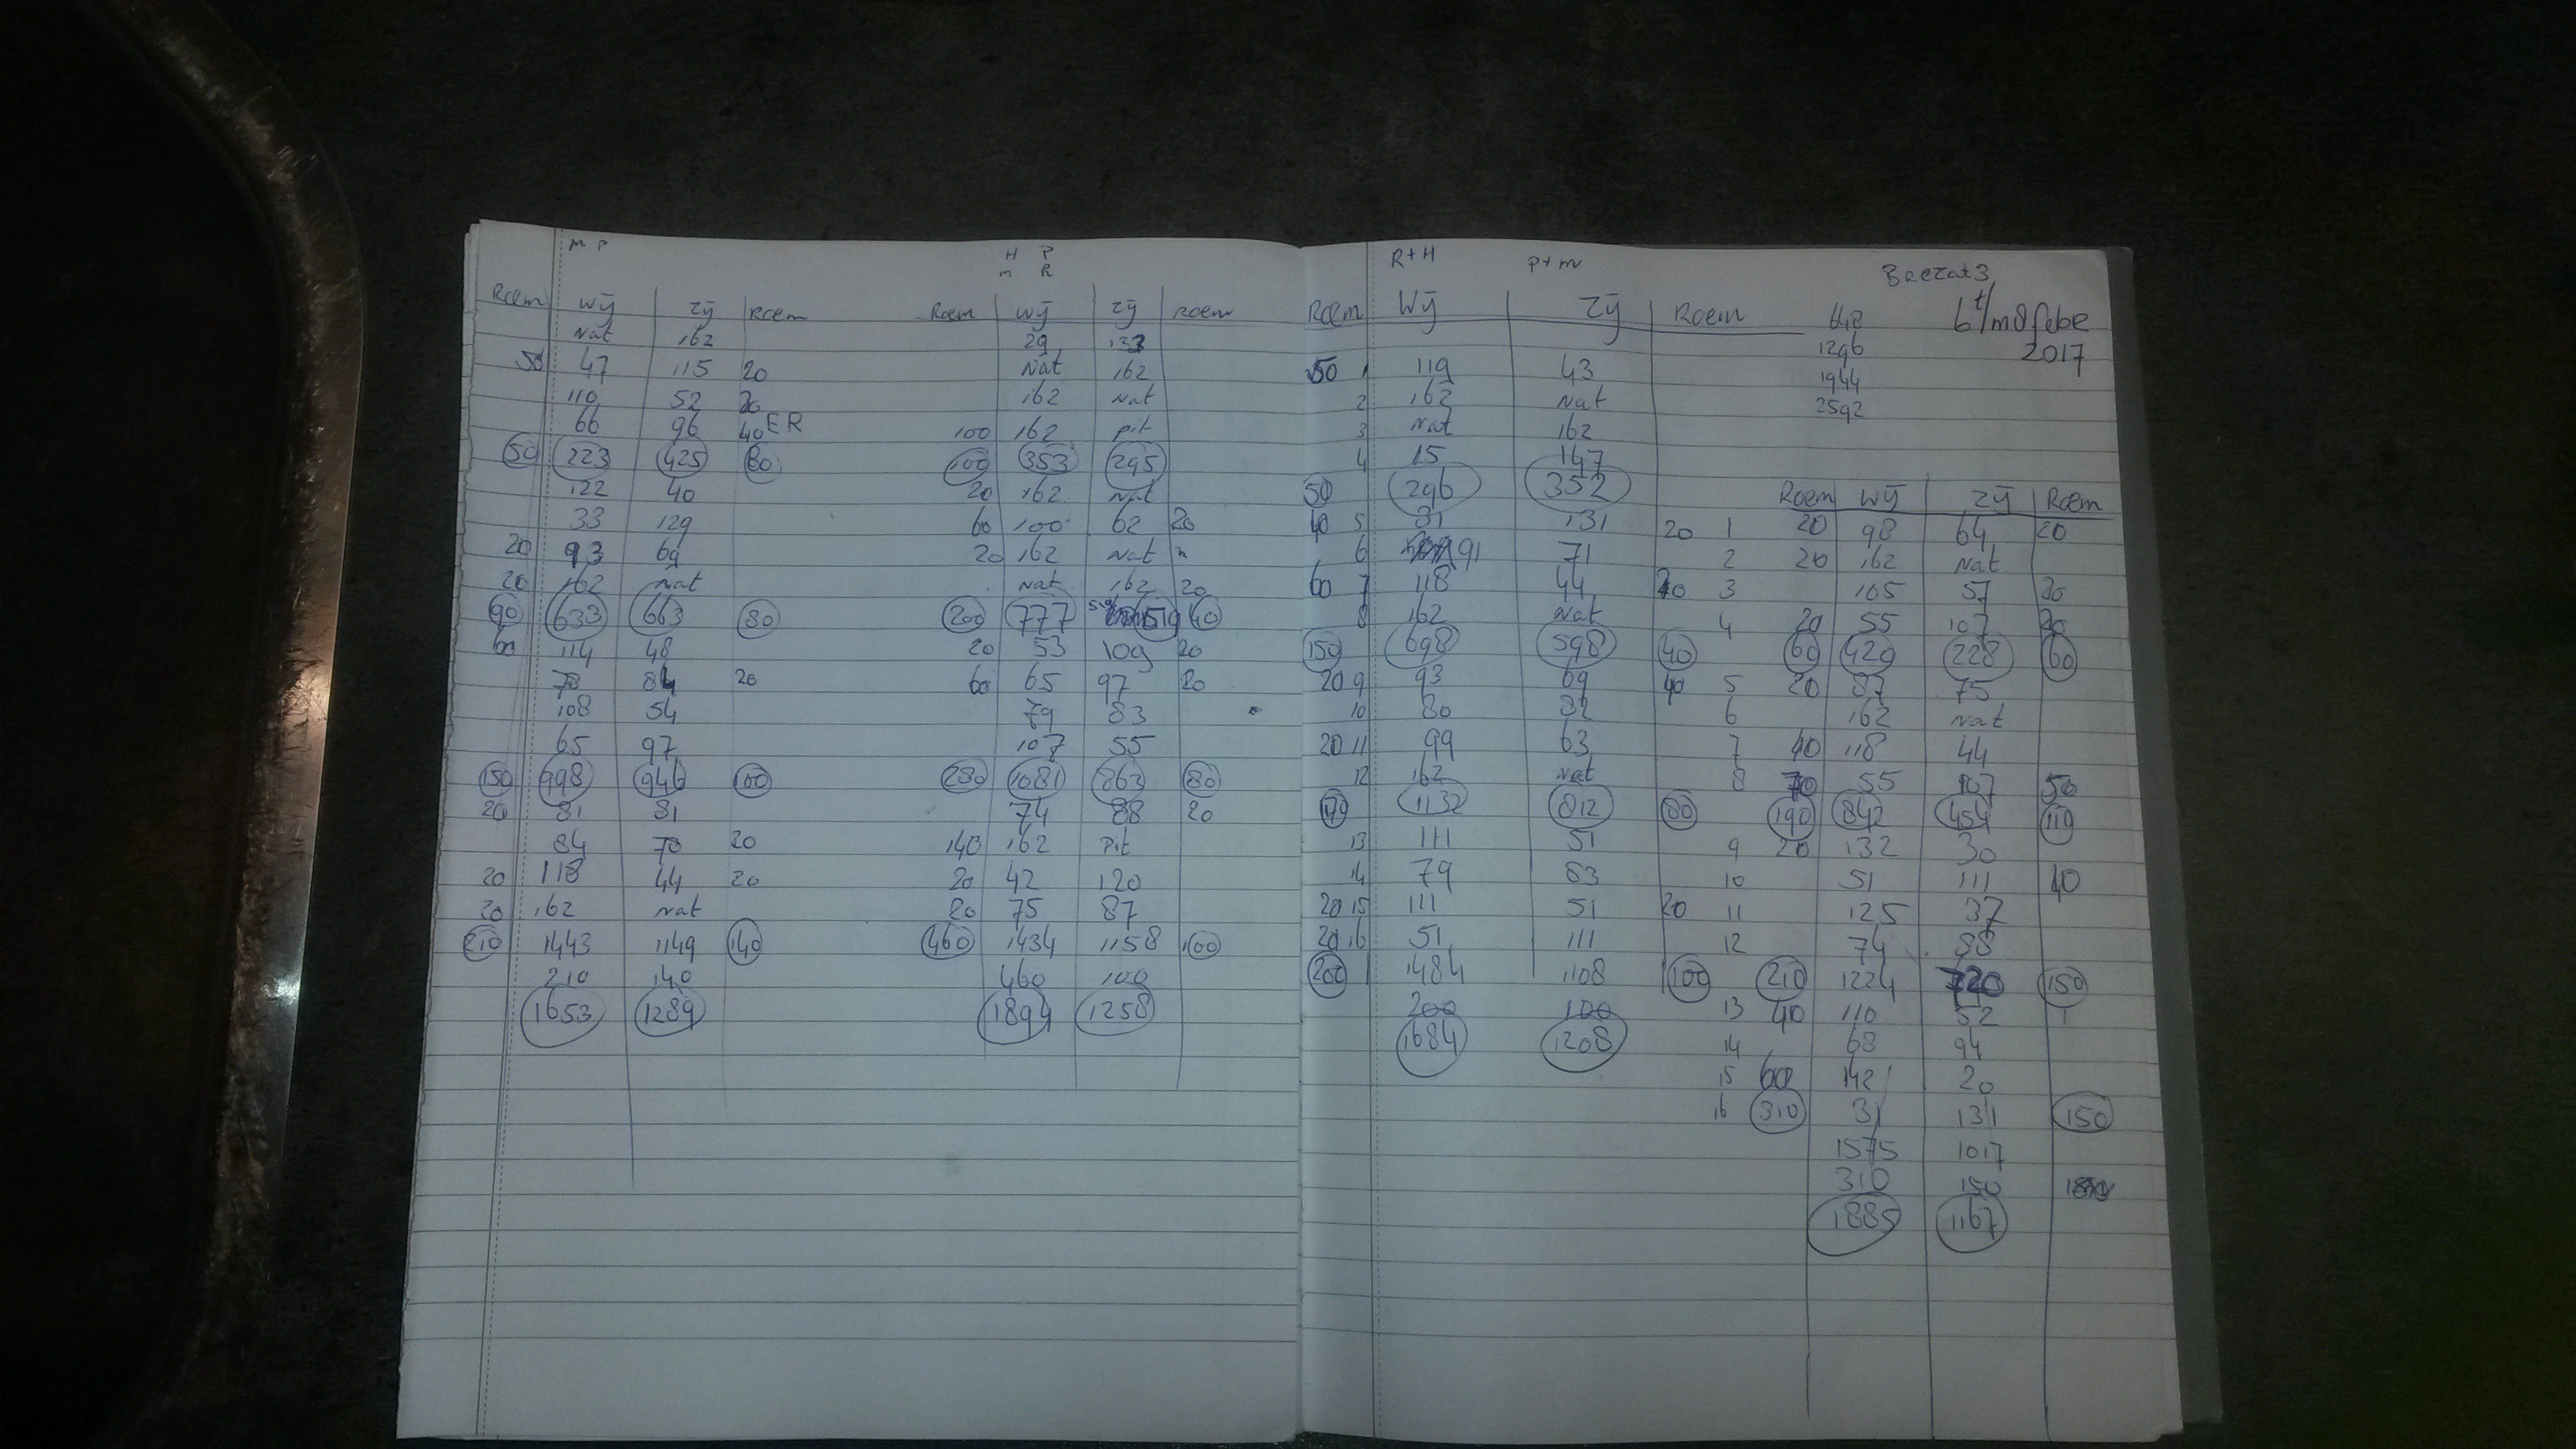 M P
Roem Wij Zij Roem
Nat 162
50 47 115 20
110 52 20
66 96 40 ER
50 223 425 80
122 40
33 129
20 93 69
20 162 Nat
90 633 663 80
60 114 48
78 84 20
108 54
65 97
150 998 946 100
20 81 81
84 78 20
20 118 44 20
20 162 Nat
210 1443 1149 140
210 140
1653 1289
H P
M R
Roem Wij Zij Roem
29 133
Nat 162
162 Nat
100 162 pit
100 353 295
20 162 Nat
60 100 62 20
20 162 Nat
Nat 162 20
200 777 519 40
20 53 109 20
60 65 97 20
79 83
107 55
280 1081 863 80
74 88 20
140 162 Pit
20 42 120
20 75 87
460 1434 1158 100
460 100
1894 1258
R+H P+M
Roem Wij Zij Roem
50 1 119 43
2 162 Nat
3 Nat 162
4 15 147
50 296 352
40 5 31 131 20
6 91 71
60 7 118 44 20
8 162 Nat
150 698 598 40
20 9 93 69 40
10 80 82
20 11 99 63
12 162 Nat
1132 812 80
13 111 51
14 79 83
20 15 111 51 20
20 16 51 111
200 1484 1108 100
200 100
1684 1208
648
1296
1944
2592
6 t/m 8 febr
2017
Roem Wij Zij Roem
1 20 98 64 20
2 20 162 Nat
3 105 57 20
4 20 55 107 20
60 420 228 60
5 20 87 75
6 162 Nat
7 40 118 44
8 70 55 107 50
190 842 454 110
9 20 132 30
10 51 111 40
11 125 37
12 74 88
210 1224 720 150
13 40 110 52
14 68 94
15 60 142 20
16 310 31 131 150
1575 1017
310 150
1885 1167